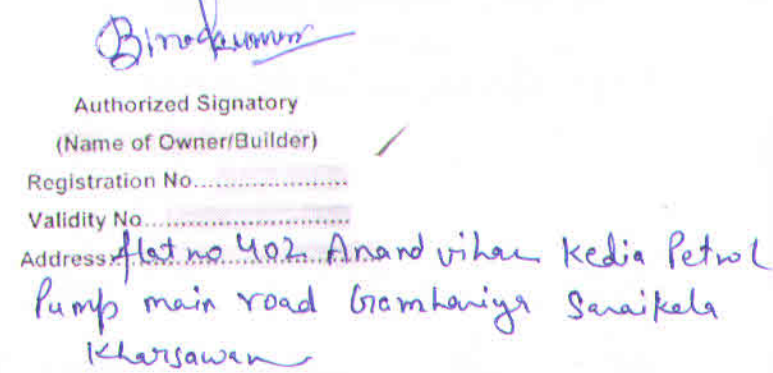 Binodkumar
Authorized Signatory
(Name of Owner/Builder)
Registration No.....................
Validity No............................
Address: flat no 402 Anand vihar Kedia Petrol
Pump main road Gamhariya Saraikela
Kharsawan